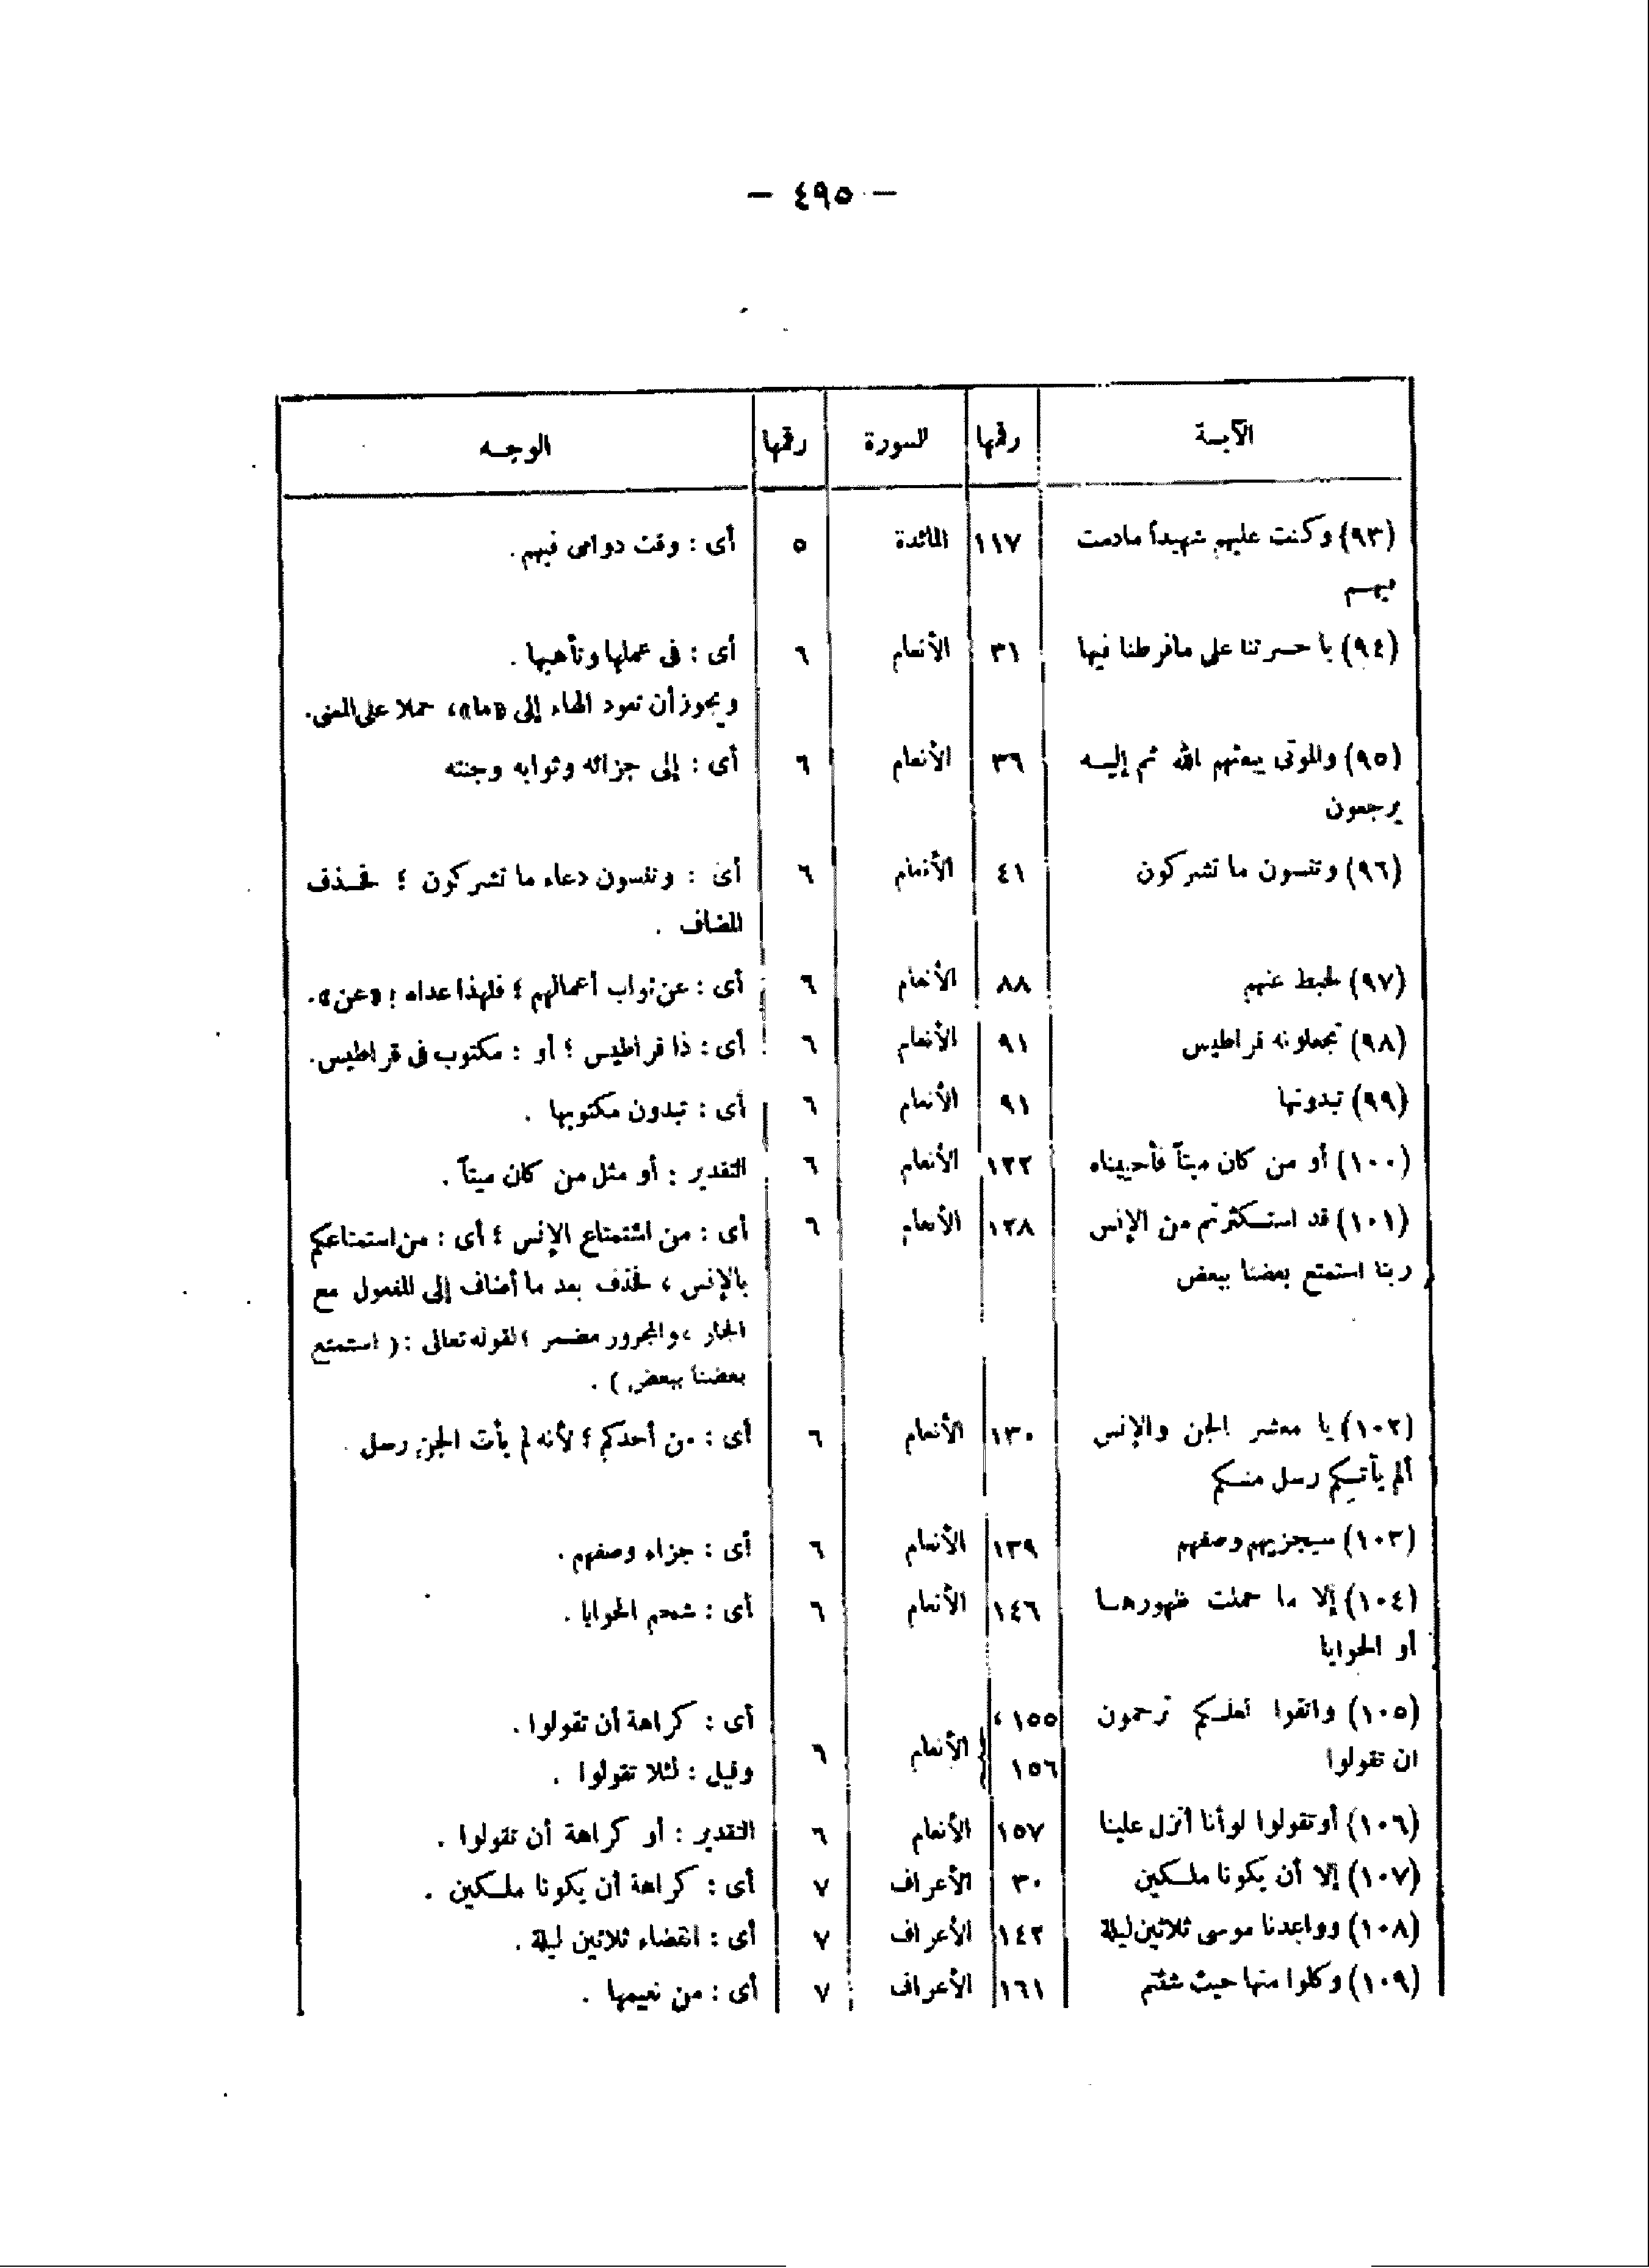 — ٤٩٥ —
الآيـة رقمها السورة رقمها الوجـه
(٩٣) وكنت عليهم شهيداً مادمت ١١٧ المائدة ٥ أى : وقت دوامى فيهم .
فيهـم
(٩٤) يا حسرتنا على مافرطنا فيها ٣١ الأنعام ٦ أى : فى عملها وتأهبها .
ويجوز أن تعود الهاء إلى «ما» ، حملا على المعنى .
(٩٥) والموتى يبعثهم الله ثم إليـه ٣٦ الأنعام ٦ أى : إلى جزائه وثوابه وجنته
يرجعون
(٩٦) وتنسون ما تشركون ٤١ الأنعام ٦ أى : وتنسون دعاء ما تشركون ؛ فحـذف
المضاف .
(٩٧) لحبط عنهم ٨٨ الأنعام ٦ أى : عن ثواب أعمالهم ؛ فلهذا عداه بـ «عن» .
(٩٨) تجعلونه قراطيس ٩١ الأنعام ٦ أى : ذا قراطيس ؛ أو : مكتوب فى قراطيس .
(٩٩) تبدونها ٩١ الأنعام ٦ أى : تبدون مكتوبها .
(١٠٠) أو من كان ميتاً فأحييناه ١٢٢ الأنعام ٦ التقدير : أو مثل من كان ميتاً .
(١٠١) قد استـكثرتم من الإنس ١٢٨ الأنعام ٦ أى : من استمتاع الإنس ؛ أى : من استمتاعكم
ربنا استمتع بعضنا ببعض بالإنس ، فحذف بعد ما أضاف إلى المفعول مع
الجار ، والمجرور مضمر ؛ لقوله تعالى : ( استمتع
بعضنا ببعض ) .
(١٠٢) يا معشر الجن والإنس ١٣٠ الأنعام ٦ أى : من أحدكم ؛ لأنه لم يأت الجن رسل .
ألم يأتـكم رسل منـكم
(١٠٣) سيجزيهم وصفهم ١٣٩ الأنعام ٦ أى : جزاء وصفهم .
(١٠٤) إلا ما حملت ظهورهـا ١٤٦ الأنعام ٦ أى : شحم الحوايا .
أو الحوايا
(١٠٥) واتقوا لعلـكم ترحمون ١٥٥ ، الأنعام ٦ أى : كراهة أن تقولوا .
ان تقولوا ١٥٦ وقيل : لئلا تقولوا .
(١٠٦) أو تقولوا لو أنا أنزل علينا ١٥٧ الأنعام ٦ التقدير : أو كراهة أن تقولوا .
(١٠٧) إلا أن يكونا ملـكين ٣٠ الأعراف ٧ أى : كراهة أن يكونا ملـكين .
(١٠٨) وواعدنا موسى ثلاثين ليلة ١٤٢ الأعراف ٧ أى : انقضاء ثلاثين ليلة .
(١٠٩) وكلوا منها حيث شئتم ١٦١ الأعراف ٧ أى : من نعيمها .